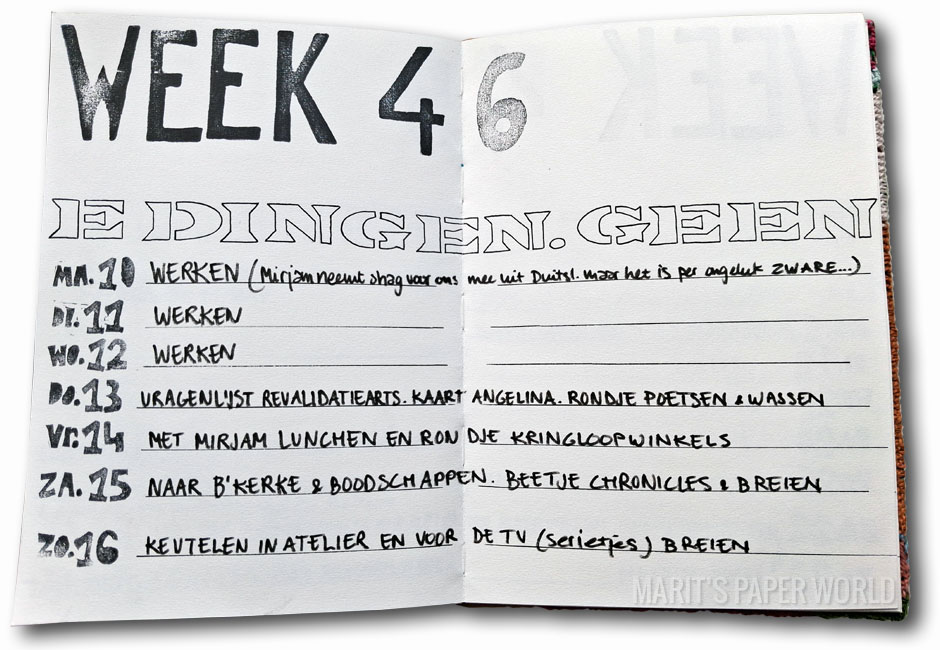 WEEK 46
E DINGEN. GEEN
MA. 10 WERKEN (Mirjam neemt shag voor ons mee uit Duitsl. maar het is per ongeluk ZWARE...)
DI. 11 WERKEN
WO. 12 WERKEN
DO. 13 VRAGENLIJST REVALIDATIEARTS. KAART ANGELINA. RONDJE POETSEN & WASSEN
Vr. 14 MET MIRJAM LUNCHEN EN RONDJE KRINGLOOPWINKELS
ZA. 15 NAAR B'KERKE & BOODSCHAPPEN. BEETJE CHRONICLES & BREIEN
ZO. 16 KEUTELEN IN ATELIER EN VOOR DE TV (serietjes) BREIEN
MARIT'S PAPER WORLD